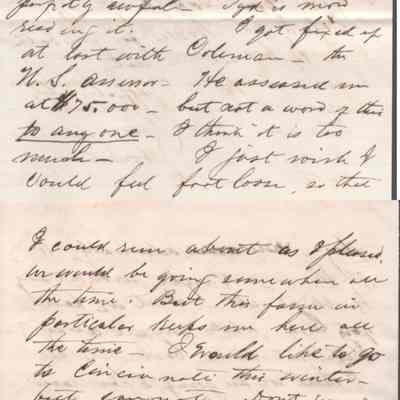 perfectly awful - Syd is now
reading it. I got fixed up
at last with Coleman - the
U.S. assessor - He assessed me
at $75.000 - but not a word of this
to any one - I think it is too
much - I just wish I
could feel foot loose, so that
I could run about as I pleased,
we would be going somewhere all
the time. But this farm in
particular keeps me here all
the time - I would like to go
to Cincinnati this winter -
but cannot